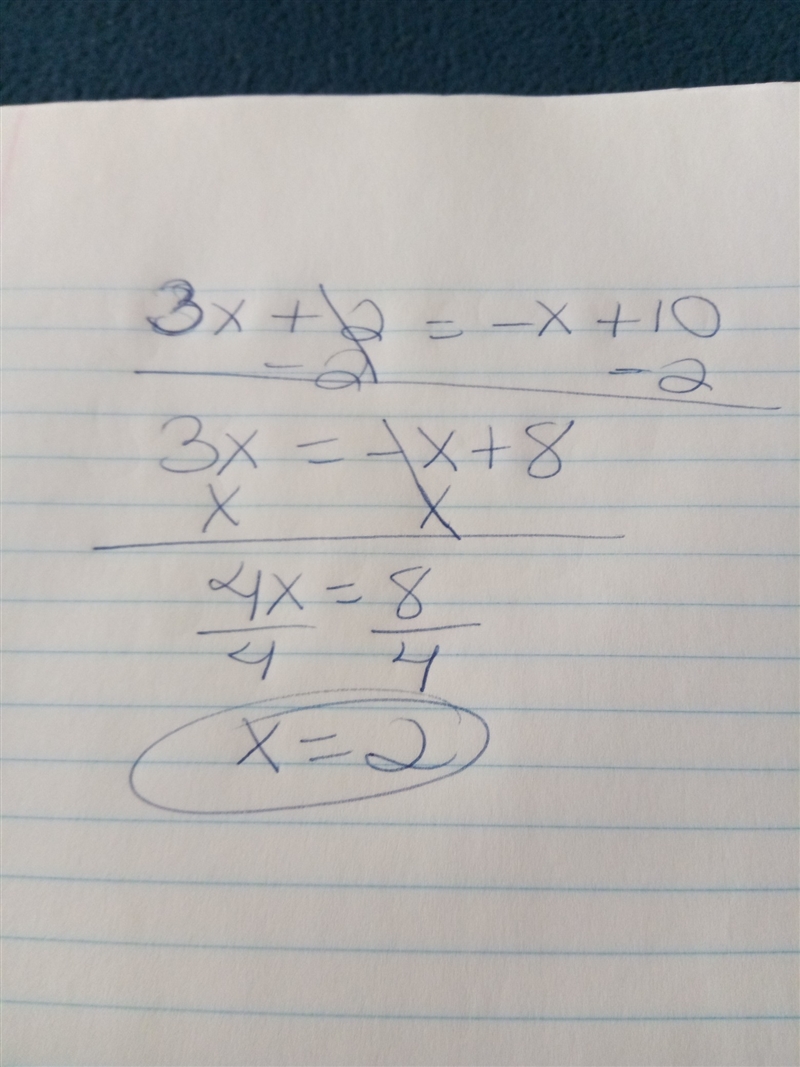 3x + 2 = -x + 10
- 2 - 2
3x = -x + 8
x x
4x = 8
4 4
x = 2